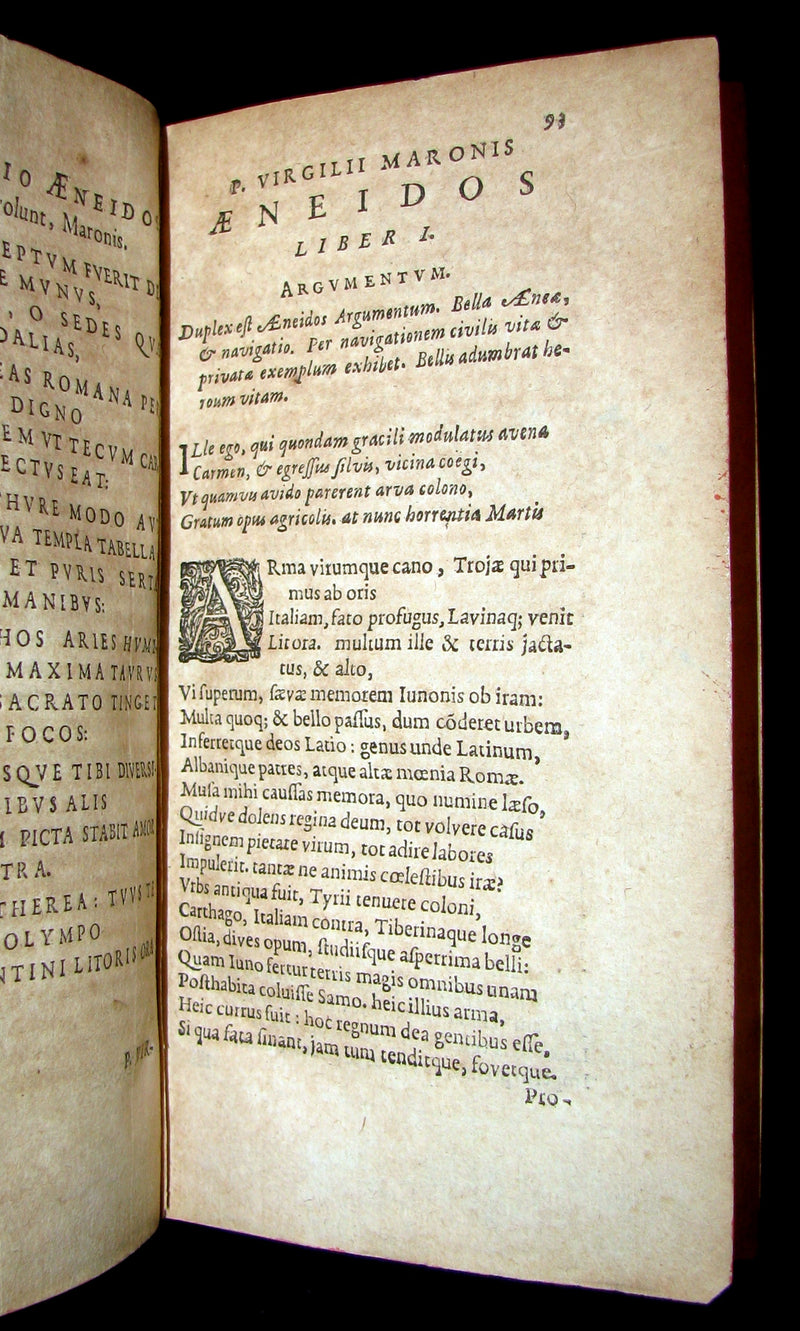 IO ÆNEIDO
olunt, Maronis.
EPTVM FVERIT DI
E MVNVS,
, O SEDES QV
DALIAS,
EAS ROMANA PE
DIGNO
EM VT TECVM CA
ECTVS EAT:
THVRE MODO AV
VA TEMPLA TABELLA
ET PVRIS SERT
MANIBVS:
HOS ARIES HVMI
MAXIMA TAVRVS
SACRATO TINGET
FOCOS:
SQVE TIBI DIVERSI-
IBVS ALIS
PICTA STABIT AMOR
TRA.
THEREA: TVVS TE
OLYMPO
NTINI LITORIS ORA
P. VIR-
93
P. VIRGILII MARONIS
ÆNEIDOS
LIBER I.
ARGVMENTVM.
Duplex eſt Æneidos Argumentum. Bella Æneæ,
& navigatio. Per navigationem civilis vitæ &
privatæ exemplum exhibet. Bellis adumbrat he-
roum vitam.
ILle ego, qui quondam gracili modulatus avena
Carmen, & egreſſus ſilvis, vicina coegi,
Vt quamvis avido parerent arva colono,
Gratum opus agricolis. at nunc horrentia Martis
ARma virumque cano, Trojæ qui pri-
mus ab oris
Italiam, fato profugus, Lavinaq; venit
Litora. multum ille & terris jacta-
tus, & alto,
Vi ſuperum, ſævæ memorem Iunonis ob iram:
Multa quoq; & bello paſſus, dum cōderet urbem,
Inferretque deos Latio: genus unde Latinum,
Albanique patres, atque altæ mœnia Romæ.
Muſa mihi cauſſas memora, quo numine læſo,
Quidve dolens regina deum, tot volvere caſus
Inſignem pietate virum, tot adire labores
Impulerit. tantæ ne animis cœleſtibus iræ?
Vrbs antiqua fuit, Tyrii tenuere coloni,
Carthago, Italiam contra, Tiberinaque longe
Oſtia, dives opum, ſtudiiſque aſperrima belli:
Quam Iuno fertur terris magis omnibus unam
Poſthabita coluiſſe Samo. heic illius arma,
Heic currus fuit: hoc regnum dea gentibus eſſe,
Si qua fata ſinant, jam tum tenditque, fovetque.
Pro-